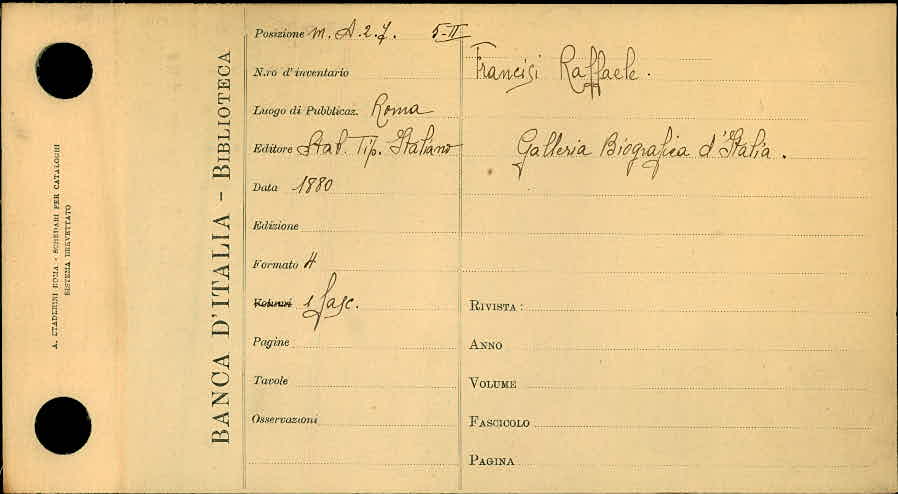 A. STADERINI ROMA - SCHEDARI PER CATALOGHI
SISTEMA BREVETTATO
BANCA D'ITALIA - BIBLIOTECA
Posizione m. A. 2. 7. 5-II
N.ro d'inventario
Luogo di Pubblicaz. Roma
Editore Stab. Tip. Italiano
Data 1880
Edizione
Formato 4
Volumi 1 fasc.
Pagine
Tavole
Osservazioni
Francisi Raffaele.
Galleria Biografica d'Italia.
RIVISTA:
ANNO
VOLUME
FASCICOLO
PAGINA